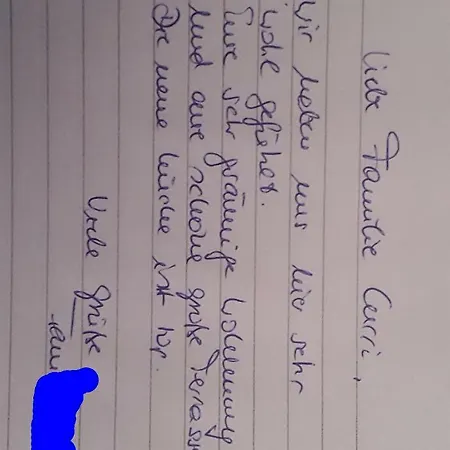 Liebe Familie Curri,
wir haben uns hier sehr
wohl gefühlt.
Eine sehr geräumige Wohnung
und eine schöne große Terasse
Die neue Küche ist top.
Viele Grüße